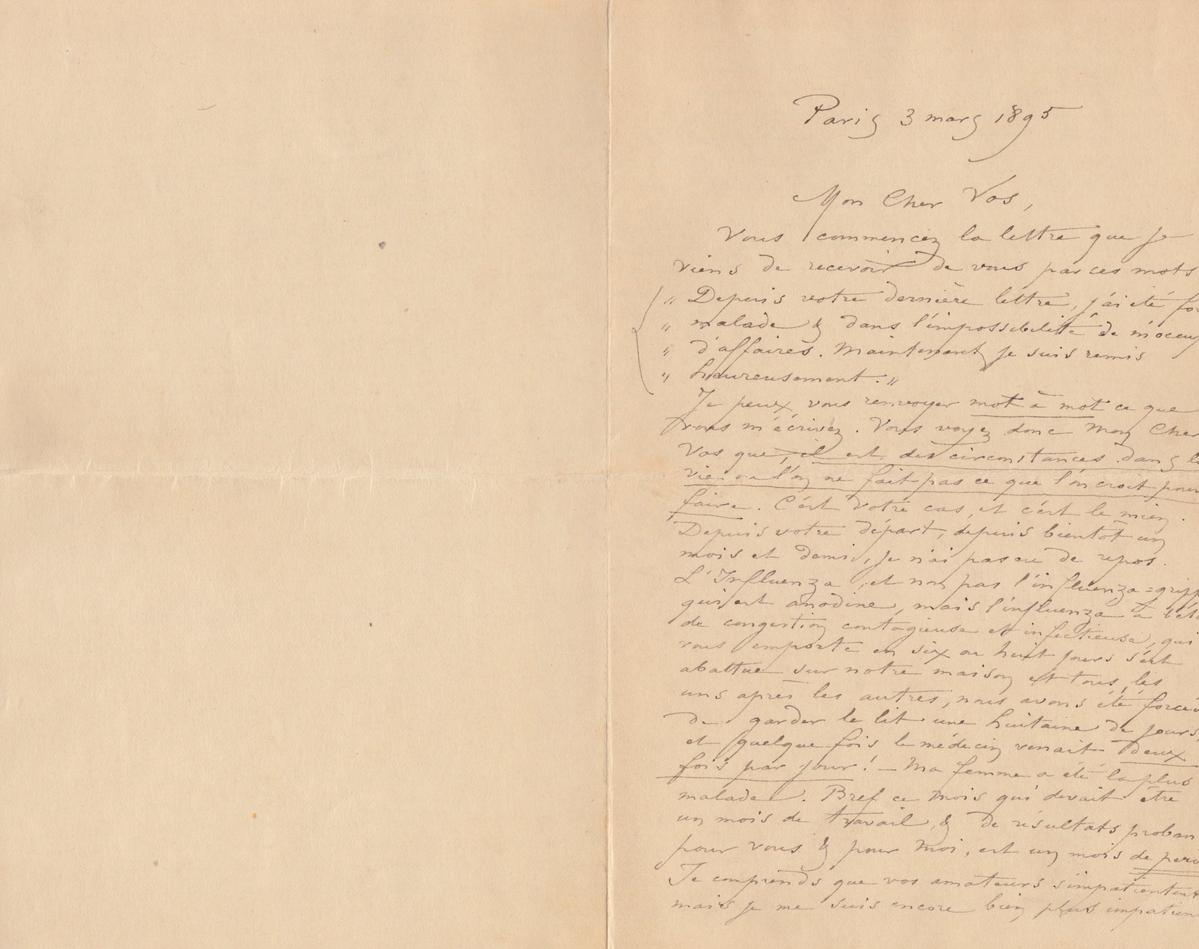 Paris 3 mars 1895
Mon Cher Vos,
Vous commencez la lettre que je
viens de recevoir de vous par ces mots
" Depuis votre dernière lettre, j'ai été
" malade & dans l'impossibilité de m'occup
" d'affaires. Maintenant je suis remis
" heureusement. "
Je peux vous renvoyer mot à mot ce que
vous m'écrivez. Vous voyez donc Mon Cher
Vos que, il est des circonstances dans
vie où l'on ne fait pas ce que l'on croit
faire. C'est votre cas, et c'est le mien.
Depuis votre départ, depuis bientôt un
mois et demi, je n'ai pas eu de repos.
L'Influenza, et non pas l'influenza=gripp
qui est anodine, mais l'influenza à
de congestion contagieuse et infectieuse, qui
vous emporte en six ou huit jours s'est
abattue sur notre maison et tous, les
uns après les autres, nous avons été forcés
de garder le lit une huitaine de jours
et quelque fois le médecin venait deux
fois par jour! — Ma femme a été la plus
malade. Bref ce mois qui devait être
un mois de travail & de résultats proban
pour vous & pour moi, est un mois de perd
Je comprends que vos amateurs s'impatientent
mais je me suis encore bien plus impatien